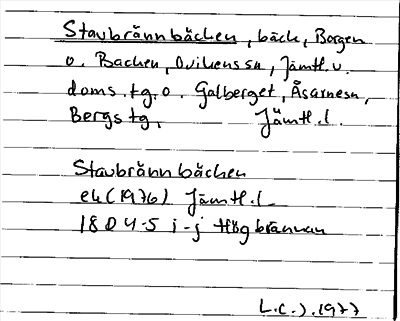 Stavbrännbäcken, bäck, Borgen
o. Backen, Ovikens sn, Jämtl. v.
doms. tg. o. Galberget, Åsarne sn,
Bergs tg, Jämtl. l.
Stavbrännbäcken
ek (1976) Jämtl. l
18 D 4-5 i-j Högbrännan
L.C.J. 1977